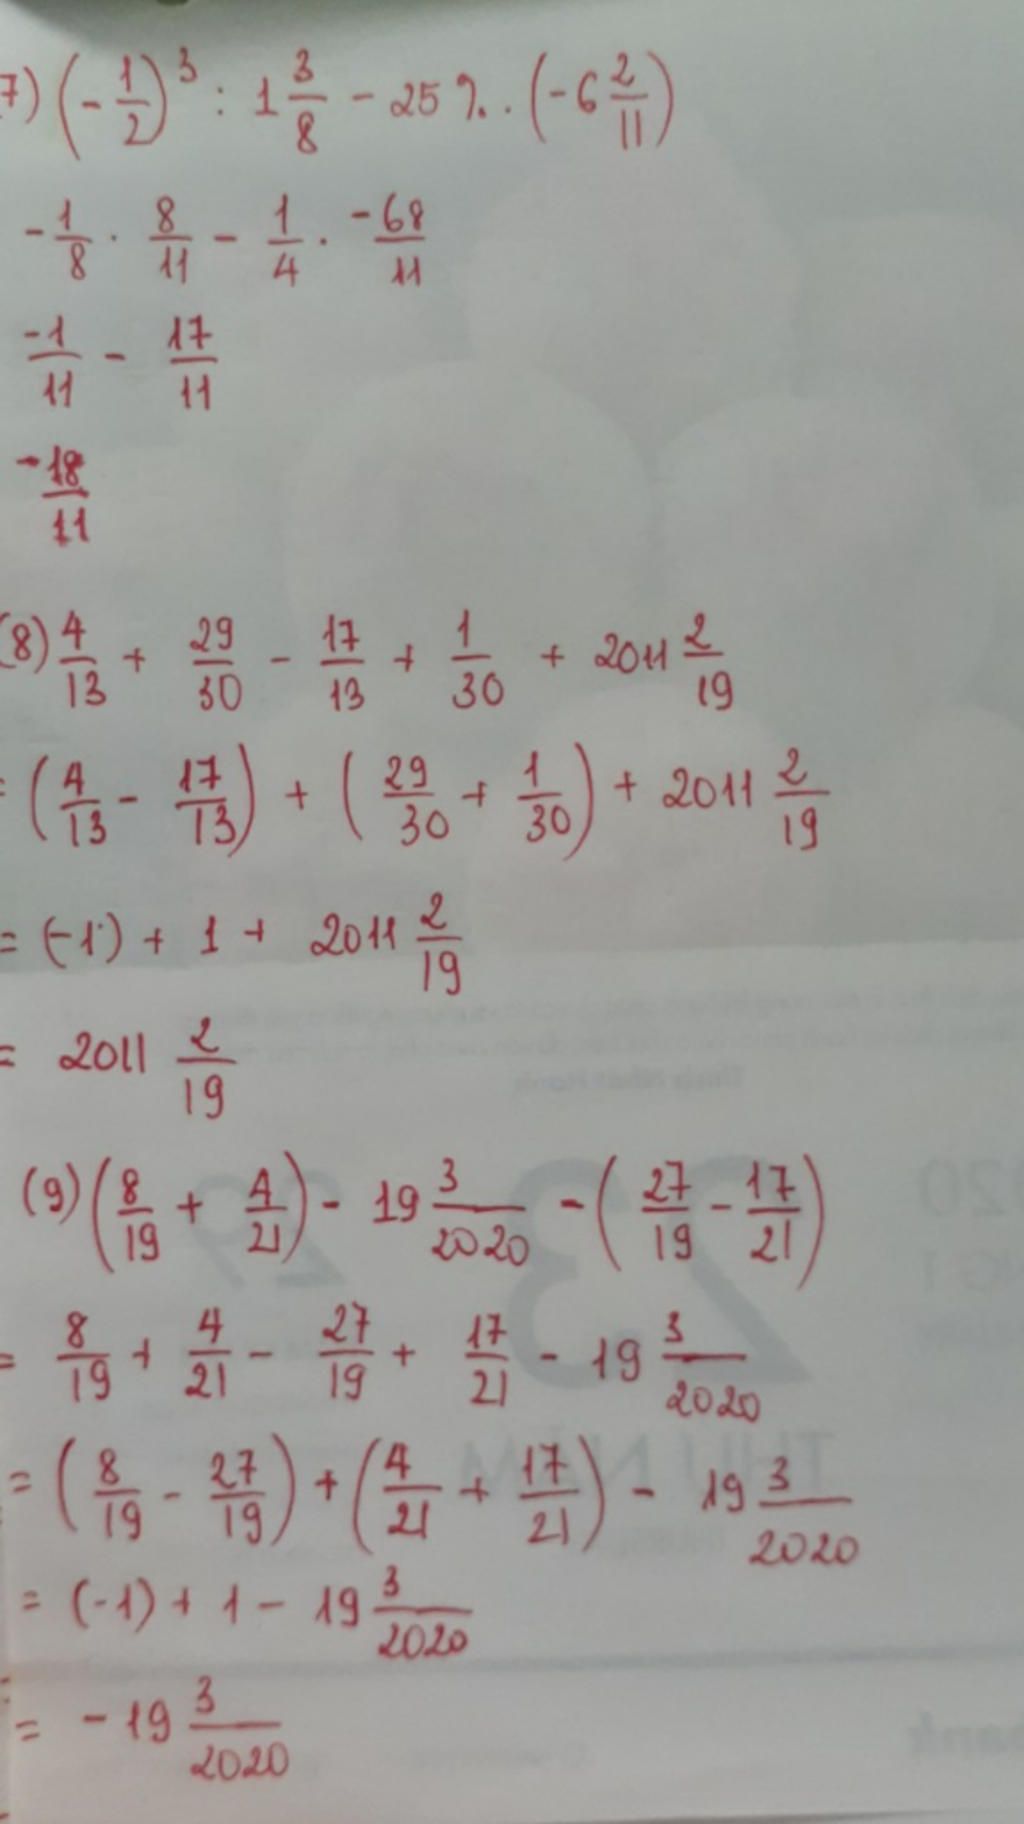 7) (-1/2)^3 : 1 3/8 - 25%. . (-6 2/11)
-1/8 . 8/11 - 1/4 . -68/11
-1/11 - 17/11
-18/11
(8) 4/13 + 29/30 - 17/13 + 1/30 + 2011 2/19
= (4/13 - 17/13) + (29/30 + 1/30) + 2011 2/19
= (-1) + 1 + 2011 2/19
= 2011 2/19
(9) (8/19 + 4/21) - 19 3/2020 - (27/19 - 17/21)
= 8/19 + 4/21 - 27/19 + 17/21 - 19 3/2020
= (8/19 - 27/19) + (4/21 + 17/21) - 19 3/2020
= (-1) + 1 - 19 3/2020
= -19 3/2020